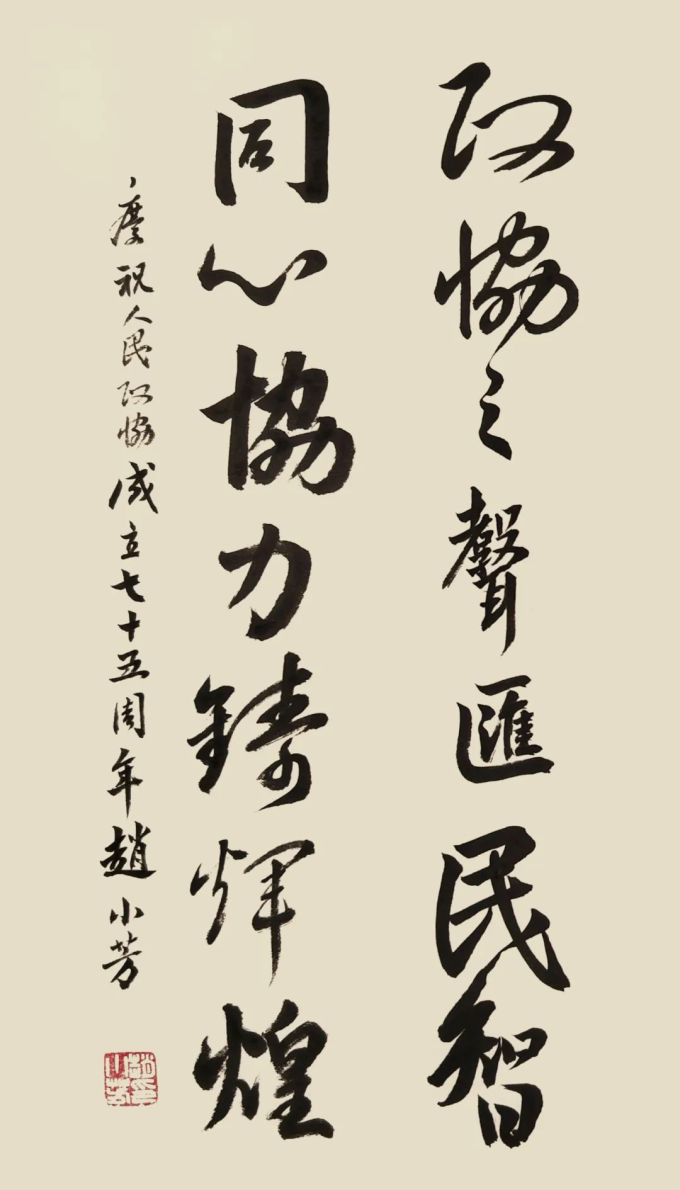 政協之聲匯民智
同心協力鑄輝煌
慶祝人民政協成立七十五周年趙小芳